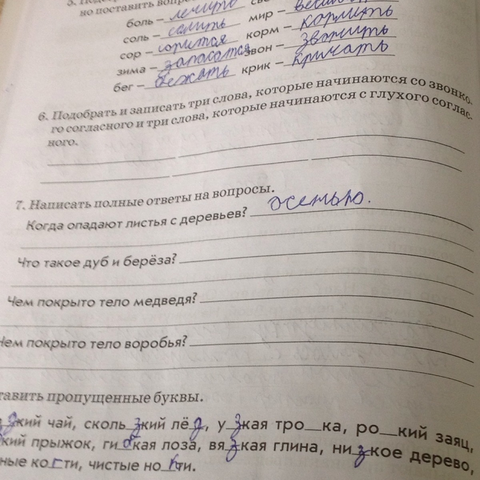 но поставить
боль – лечить
соль – солить мир –
сор – сорится корм – кормить
зима – звон – звонить
бег – бежать крик – кричать
6. Подобрать и записать три слова, которые начинаются со звонко-
го согласного и три слова, которые начинаются с глухого соглас-
ного.
7. Написать полные ответы на вопросы.
Когда опадают листья с деревьев? осенью.
Что такое дуб и берёза?
Чем покрыто тело медведя?
Чем покрыто тело воробья?
ставить пропущенные буквы.
дкий чай, сколь_зкий лёд, у_зкая тро__ка, ро__кий заяц,
кий прыжок, гибкая лоза, вя_зкая глина, ни_зкое дерево,
ные когти, чистые ногти.